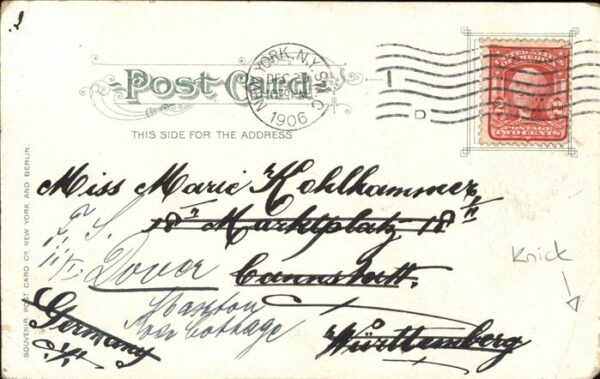 NEW YORK, N.Y. STA. C
DEC 2
1906
Post Card
THIS SIDE FOR THE ADDRESS
UNITED STATES OF AMERICA
POSTAGE
TWO CENTS
D
Miss Marie Kohlhammer,
18 Marktplatz 18
Dover
Cannstatt.
Knick
Cottage
Germany
Württemberg
SOUVENIR POST CARD CO. NEW YORK AND BERLIN.